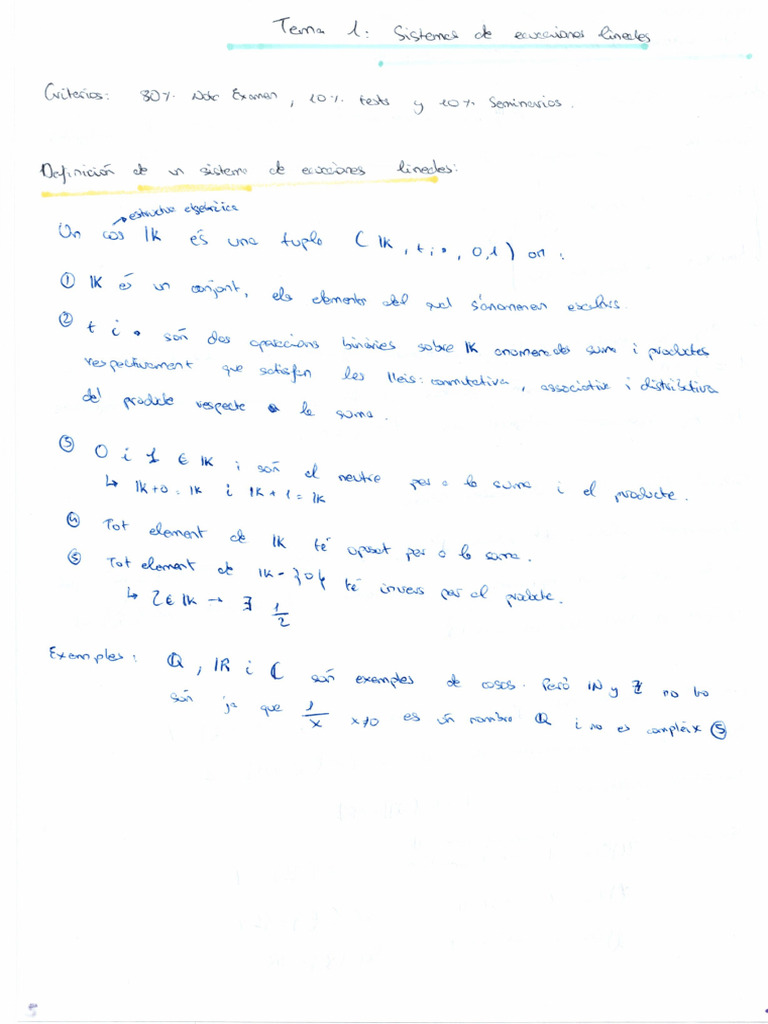 Tema 1: Sistemas de ecuaciones lineales
Criterios: 80% Nota Examen, 10% tests y 10% Seminarios.
Definición de un sistema de ecuaciones lineales:
estructura algebraica
Un cos IK és una tuplo (IK, + i •, 0, 1) on:
① IK és un conjunt, els elements del qual s'anomenen escalars.
② + i • són dos operacions binàries sobre IK anomenades suma i productes
respectivament que satisfan les lleis: conmutativa, associativa i distributiva
del producte respecte a la suma.
③ 0 i 1 ∈ IK i són el neutre per a la suma i el producte.
↳ IK+0 = IK i IK * 1 = IK
④ Tot element de IK té oposat per a la suma.
⑤ Tot element de IK - {0} té invers per al producte.
↳ 2 ∈ IK → ∃ 1/2
Exemples: Q, IR i C són exemples de cosos. Però IN y Z no ho
són ja que 1/x x≠0 es un nombre Q i no es compleix ⑤